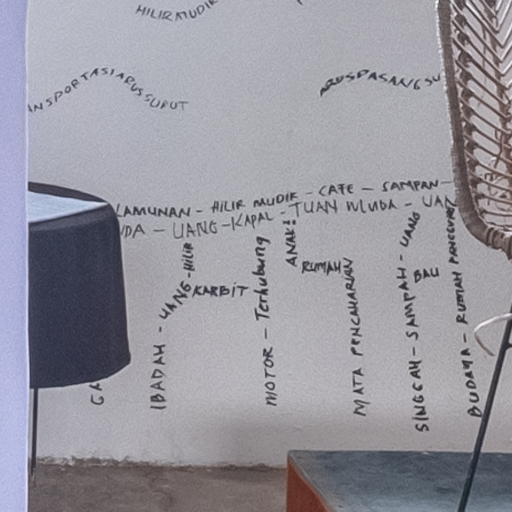 HILIR MUDIK
ANSPORTASI ARUS SURUT
ARUS PASANG SU
LAMUNAN - HILIR MUDIK - CAFE - SAMPAN -
DA - UANG - KAPAL - TUAN MUDA - UAN
IBADAH - UANG - HILIR
KARBIT
MOTOR - Terhubung
ANAK²
RUMAH
MATA PENCAHARIAN
SINGGAH - SAMPAH - UANG
BAU
BUDAYA - RUMAH